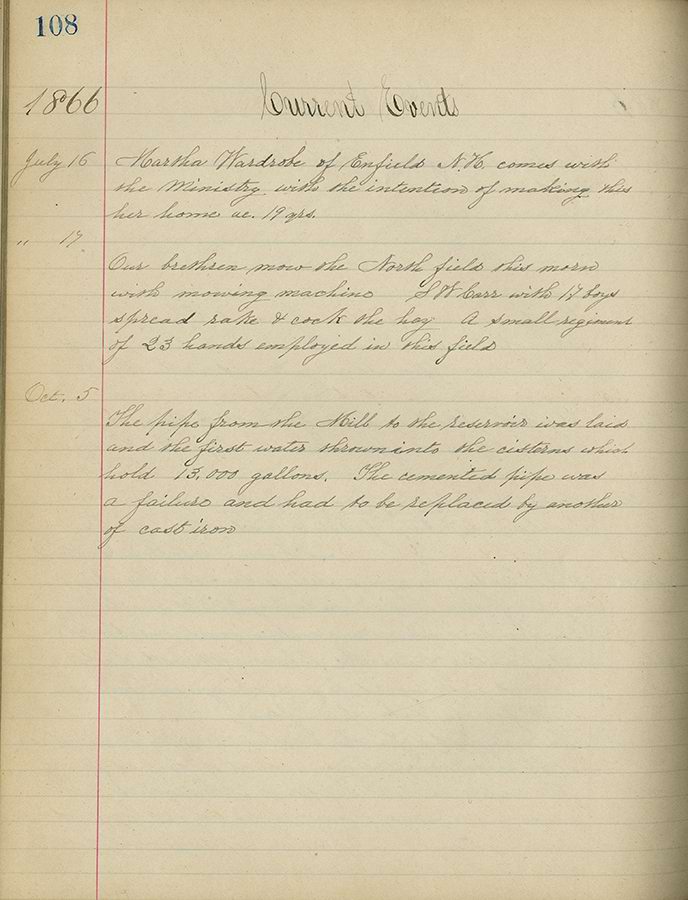 108
1866 Current Events
July 16 Martha Wardrobe of Enfield N.H. comes with
the Ministry with the intention of making this
her home ae. 19 yrs.
" 17
Our brethren mow the North field this morn
with mowing machine S W Carr with 17 boys
spread rake & cock the hay A small regiment
of 23 hands employed in this field
Oct. 5
The pipe from the Mill to the reservoir was laid
and the first water thrown into the cisterns which
hold 13,000 gallons. The cemented pipe was
a failure and had to be replaced by another
of cast iron